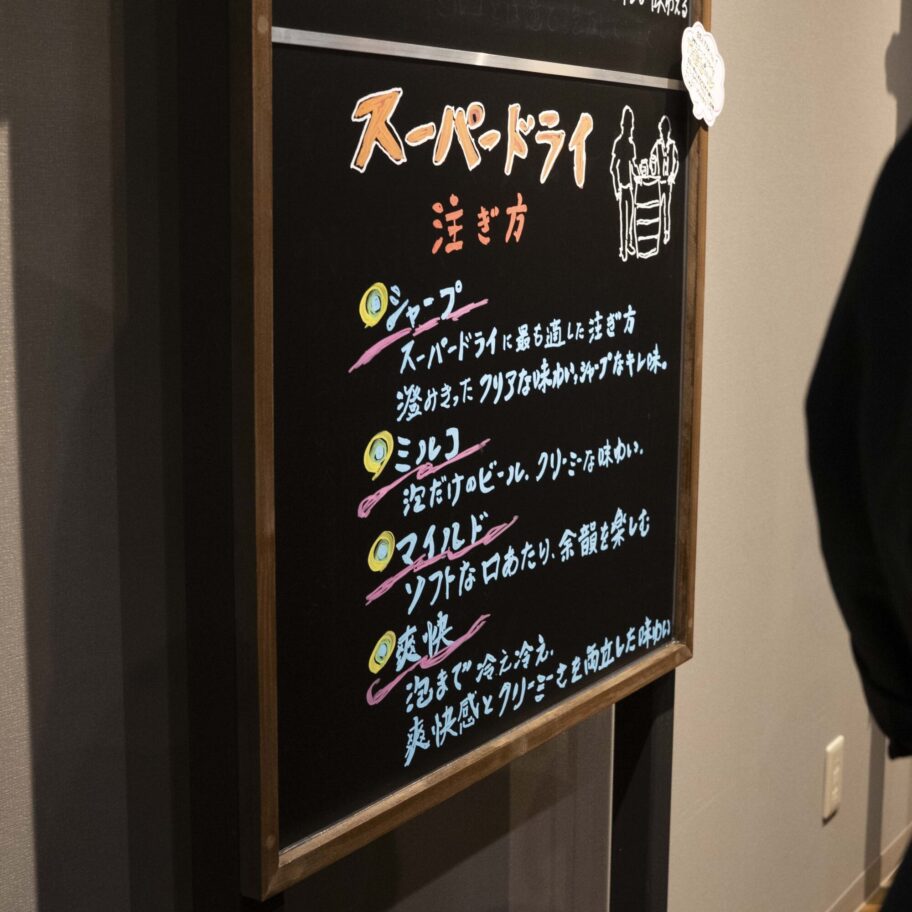 味わえる
スーパードライ
注ぎ方
シャープ
スーパードライに最も適した注ぎ方
澄みきったクリアな味わい、シャープなキレ味。
ミルコ
泡だけのビール、クリーミーな味わい、
マイルド
ソフトな口あたり、余韻を楽しむ
爽快
泡まで冷え冷え、
爽快感とクリーミーさを両立した味わい